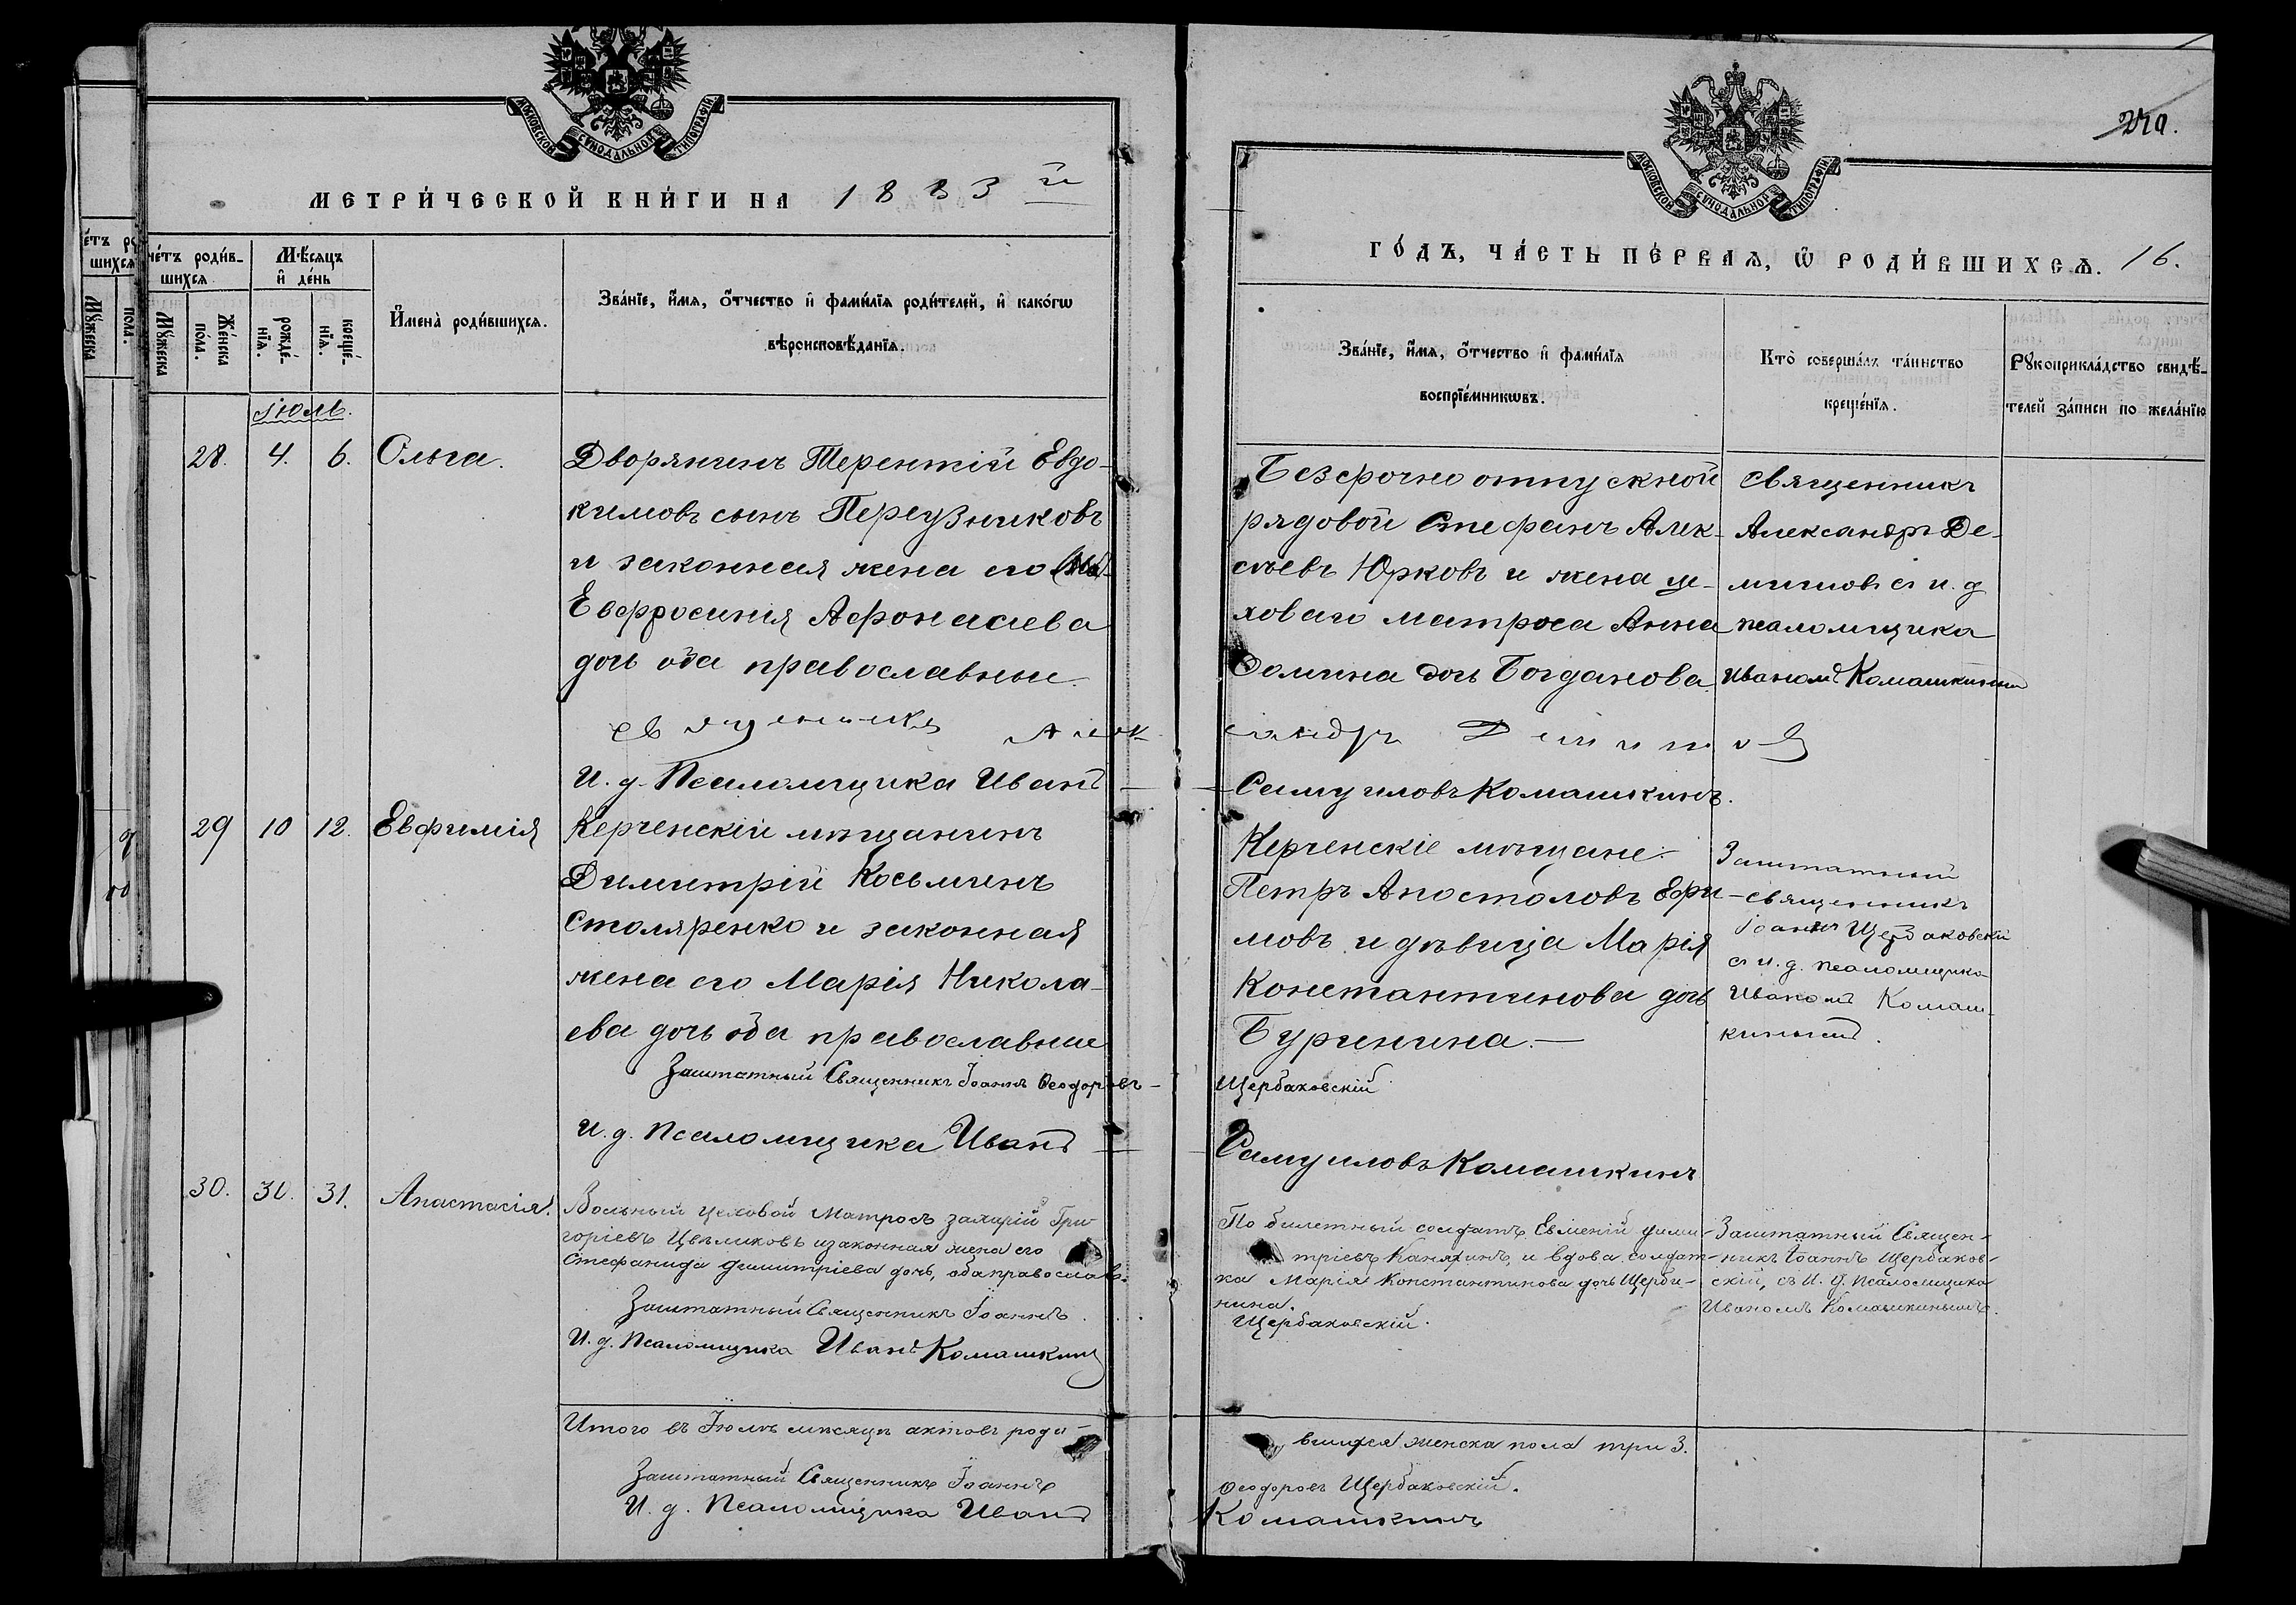 МОСКОВСКОЙ СѴНОДАЛЬНОЙ ТИПОГРАФІИ
МЕТРИ́ЧЕСКОЙ КНИ́ГИ НА 1883 й
че́тъ роди́в-
шихсѧ
Мꙋ́жеска
Же́нска
по́ла.
Мѣ́сѧцъ
и҆ де́нь
рожде́-
нїѧ.
креще́-
нїѧ.
И҆мена̀ роди́вшихсѧ.
Зва́нїе, и҆́мѧ, ѻ҆́тчество и҆ фами́лїѧ роди́телей, и҆ како́гѡ
вѣроисповѣ́данїѧ.
Іюль.
28. 4. 6. Ольга.
Дворянинъ Терентій Евдо-
кимовъ сынъ Переузниковъ
и законная жена его
Евфросинія Афонасиева
дочь оба православные
священникъ Алек
И. д. Псаломщика Иванъ
29 10 12. Евфимія
Керченскій мѣщанинъ
Димитрій Косьминъ
Столяренко и законная
жена его Марія Никола-
ева дочь оба православные
Заштатный Священникъ Іоаннъ Ѳеодоровъ
И. д. Псаломщика Иванъ
30. 30. 31. Анастасія.
Вольный цеховой Матросъ Захарій Гри
горіевъ Цвѣликовъ и законная жена его
Стефанида Димитріева дочь, оба православ.
Заштатный Священникъ Іоаннъ
И. д. Псаломщика Иванъ Комашкинъ
Итого въ Іюлѣ мѣсяцѣ актовъ роди
Заштатный Священникъ Іоаннъ
И. д. Псаломщика Иванъ
МОСКОВСКОЙ СѴНОДАЛЬНОЙ ТИПОГРАФІИ
ГО́ДЪ, ЧА́СТЬ ПЕ́РВАѦ, Ѡ҆ РОДИ́ВШИХСѦ. 16.
Зва́нїе, и҆́мѧ, ѻ҆́тчество и҆ фами́лїѧ
воспрїе́мникѡвъ.
Кто̀ соверша́лъ та́инство
креще́нїѧ.
Рꙋкоприкла́дство свидѣ́-
телей за́писи по жела́нїю
Безсрочно отпускной
рядовой Стефанъ Алек-
сѣевъ Юрковъ и жена це-
ховаго матроса Анна
Фомина дочь Богданова
Священникъ
Александръ Де-
мидовъ съ и. д
псаломщика
Иваномъ Комашкинымъ
сандръ Демидовъ
Самуиловъ Комашкинъ.
Керченскіе мѣщане:
Петръ Апостоловъ Ефи-
мовъ и дѣвица Марія
Константинова дочь
Буринина.—
Заштатный
священникъ
Іоаннъ Щербаковскій
съ и. д. псаломщика
Иваномъ Комаш-
кинымъ.
Щербаковскій
Самуиловъ Комашкинъ
По билетный солдатъ Евменій Дими-
тріевъ Каняхинъ, и вдова солдат-
ка Марія Константинова дочь Щерби-
нина.
Заштатный Священ-
никъ Іоаннъ Щербаков-
скій, съ И. д. Псаломщика
Иваномъ Комашкинымъ.
Щербаковскій.
вшихся женска пола три 3.
Ѳеодоровъ Щербаковскій.
Комашкинъ